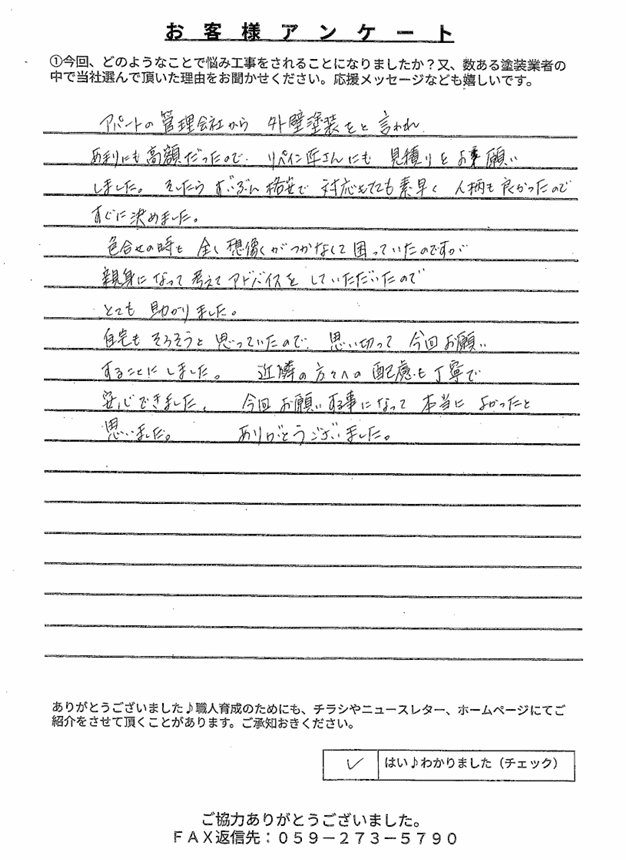 お客様アンケート
①今回、どのようなことで悩み工事をされることになりましたか？又、数ある塗装業者の
中で当社選んで頂いた理由をお聞かせください。応援メッセージなども嬉しいです。
アパートの管理会社から 外壁塗装をと言われ
あまりにも高額だったので、リペイン匠さんにも 見積りをお願い
しました。そしたら ずいぶん 格安で 対応もとても素早く 人柄も良かったので
すぐに決めました。
色合せの時も 全く想像がつかなくて困っていたのですが
親身になって考えてアドバイスを していただいたので
とても 助かりました。
自宅も そろそろと思っていたので、思い切って 今回お願い
することにしました。 近隣の方々への配慮も丁寧で
安心できました。 今回お願いする事になって 本当に よかったと
思いました。 ありがとうございました。
ありがとうございました♪職人育成のためにも、チラシやニュースレター、ホームページにてご
紹介をさせて頂くことがあります。ご承知おきください。
✓ はい♪わかりました（チェック）
ご協力ありがとうございました。
ＦＡＸ返信先：０５９－２７３－５７９０